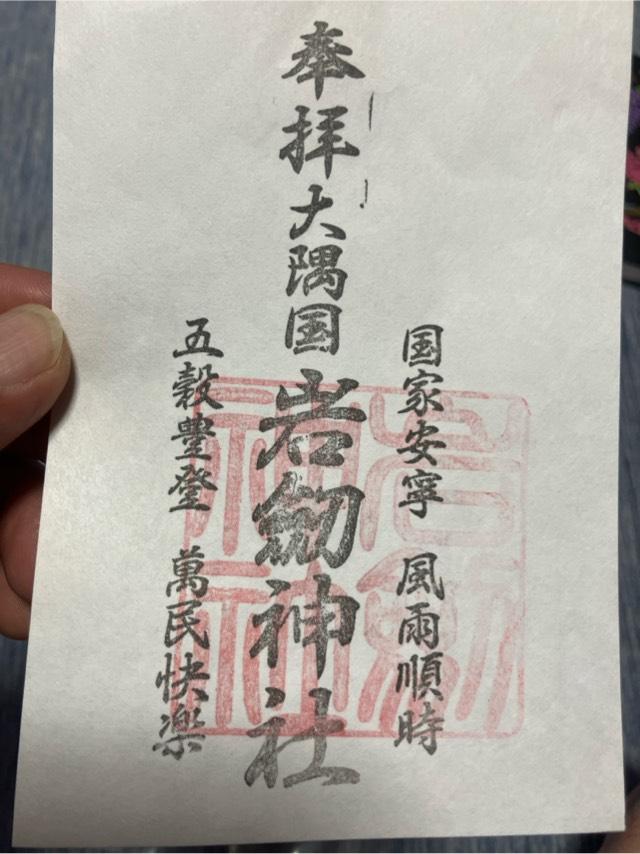 国家安寧 風雨順時
奉拝 大隅国 岩劔神社
五穀豊登 萬民快楽
岩劔
神社